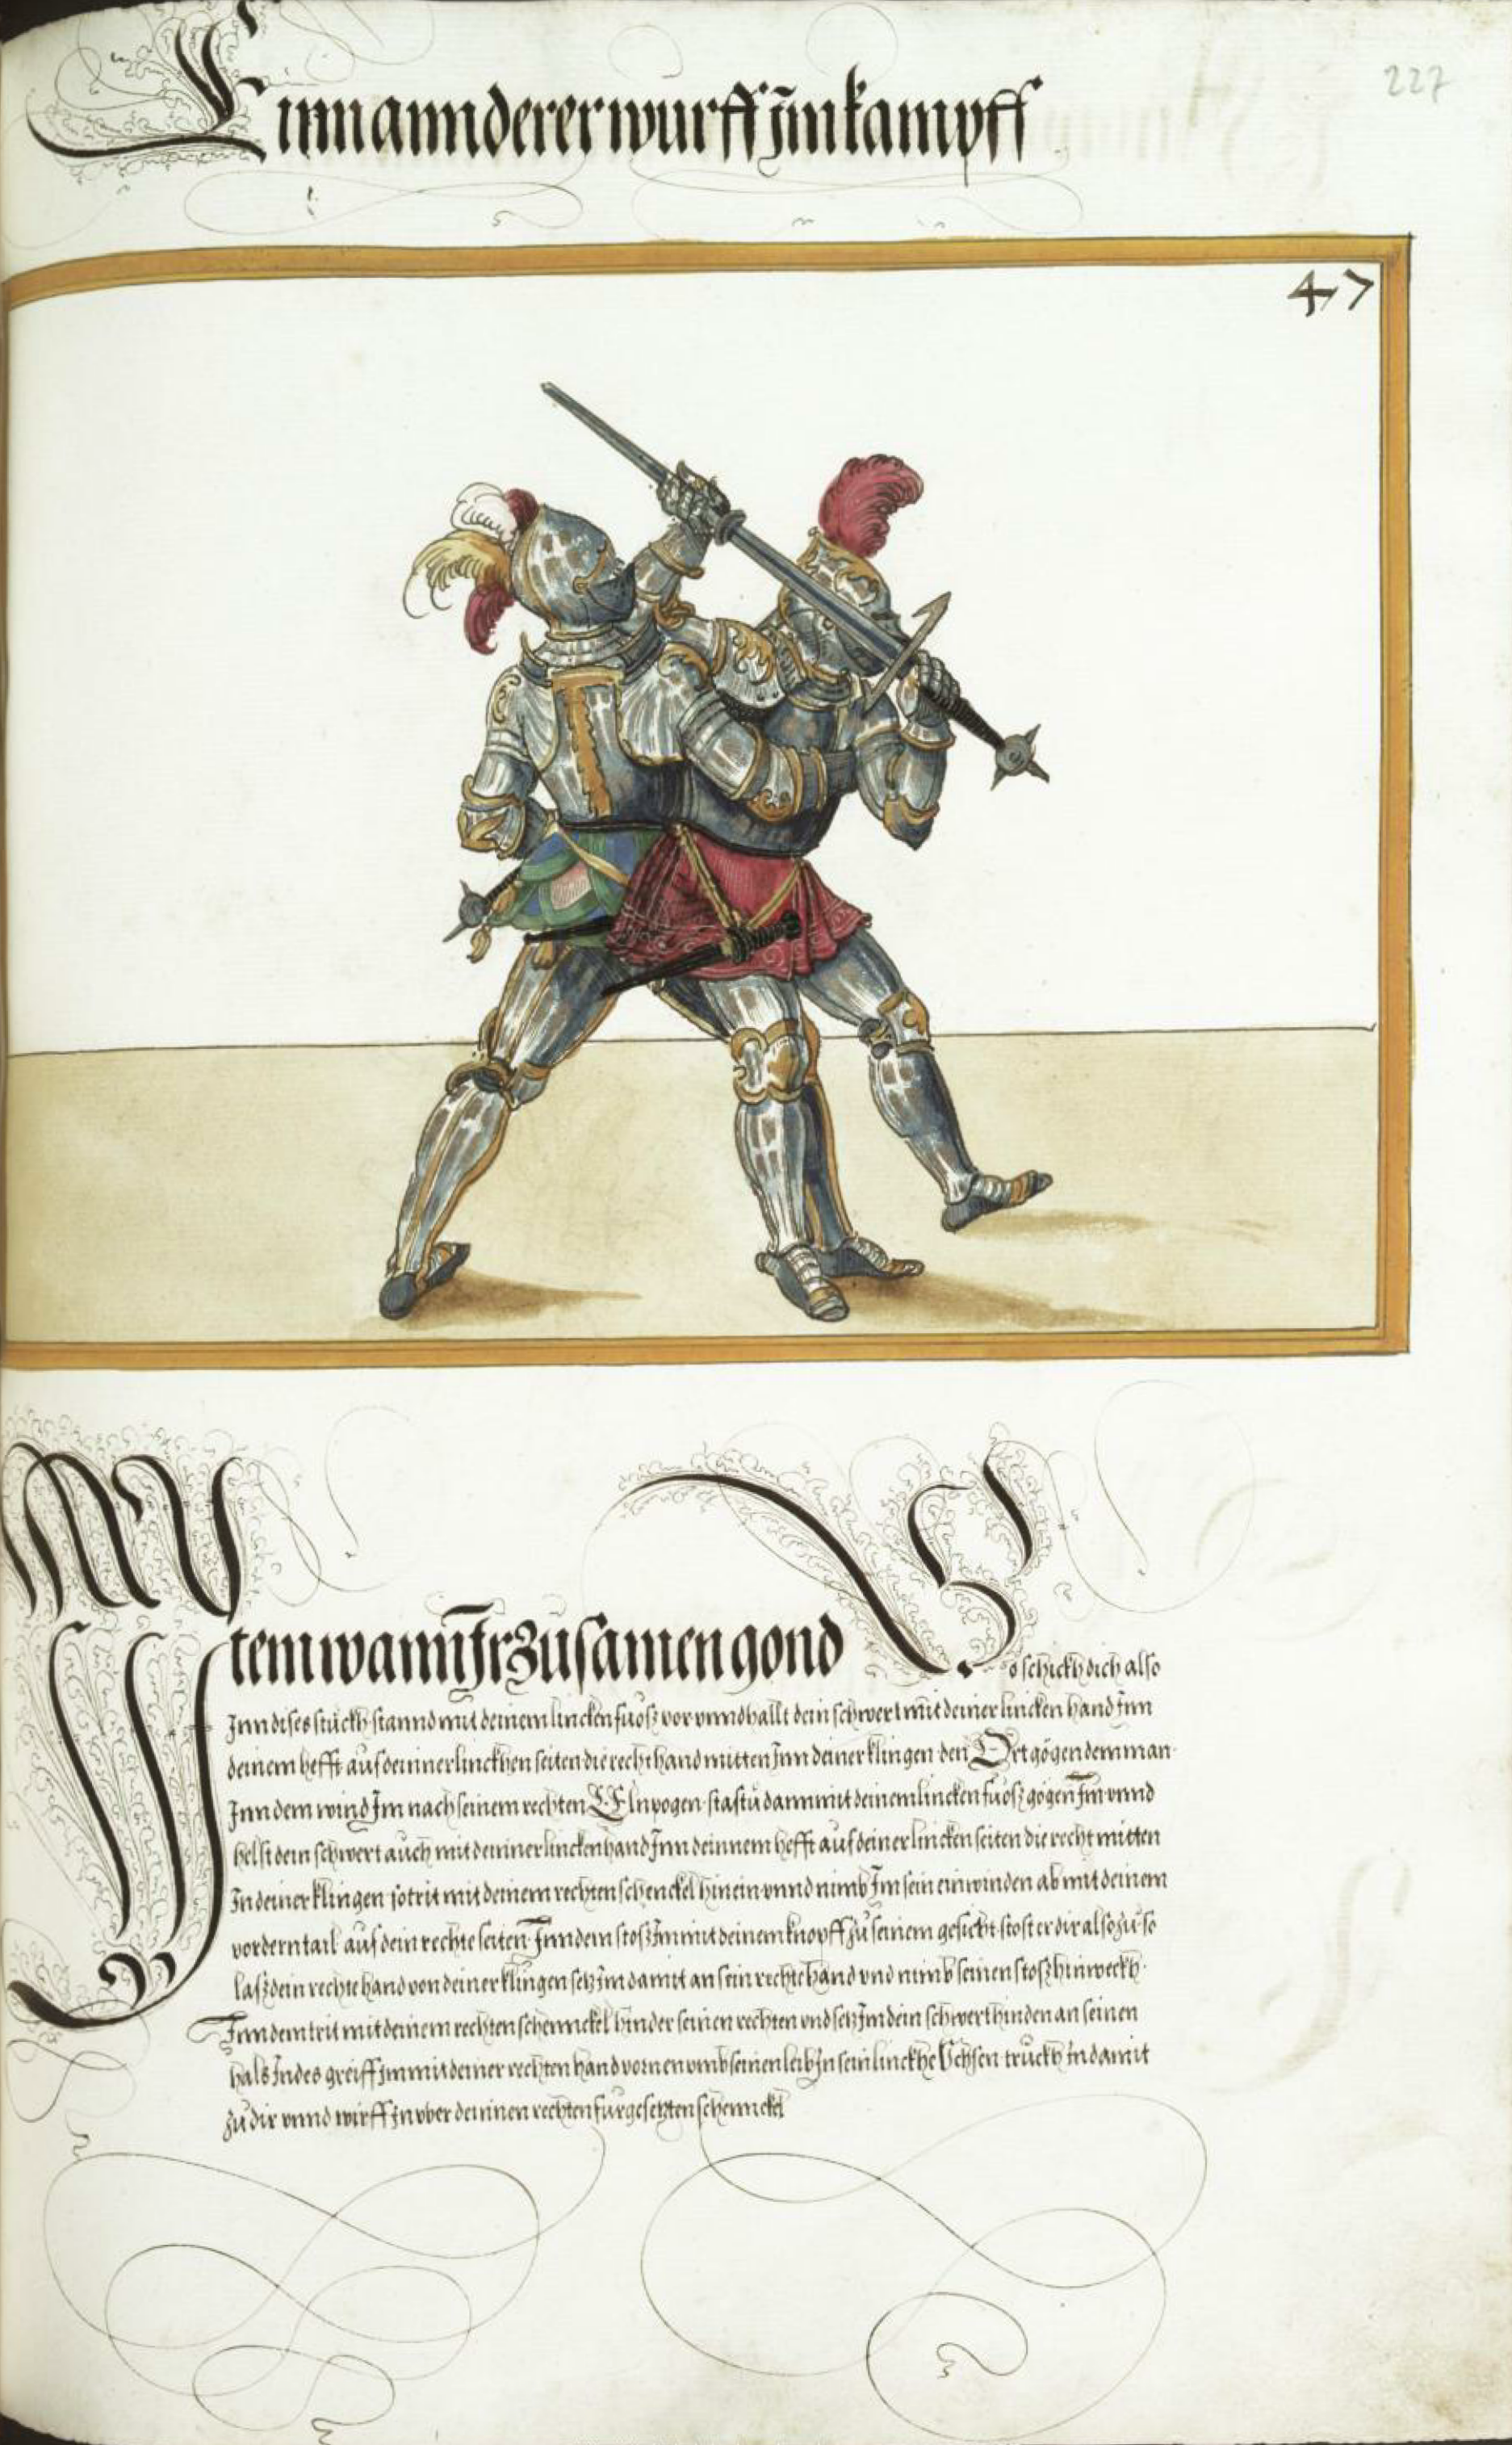 227
Einn annderer wurff Im kampff
47
Item wann Ir zusamen gond So schickh dich also
Inn dises stuckh stannd mit deinem lincken fuosz vor vnnd hallt dein schwert mit deiner lincken hand Inn
deinem hefft auf deinner linckhen seiten die recht hand mitten Inn deiner klingen den Ort gögen dem man
Inn dem wind Im nach seinem rechten Elnpogen stastu dann mit deinem lincken fuosz gögen Im vnnd
helst dein schwert auch mit deinner lincken hand Inn deinnem hefft auf deiner lincken seiten die recht mitten
In deiner klingen so trit mit deinem rechten schenckel hinein vnnd nimb Im sein einwinden ab mit deinem
vordern tail auf dein rechte seiten Inn dem stosz Im mit deinem knopff zu seinem gesicht stost er dir also zu so
lasz dein rechte hand von deiner klingen setz Im damit an sein rechte hand vnd nimb seinen stosz hinweckh
Inn dem trit mit deinem rechten schennckel hinder seinen rechten vnd setz Im dein schwert hinden an seinen
hals Indes greiff Im mit deiner rechten hand vornen vmb seinen leib In sein linckhe Vchsen truckh In damit
zu dir vnnd wirff In vber deinnen rechten furgesetzten schennckel